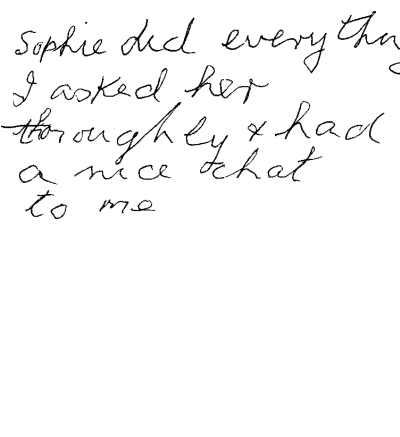 Sophie did everything
I asked her
thoroughly & had
a nice chat
to me